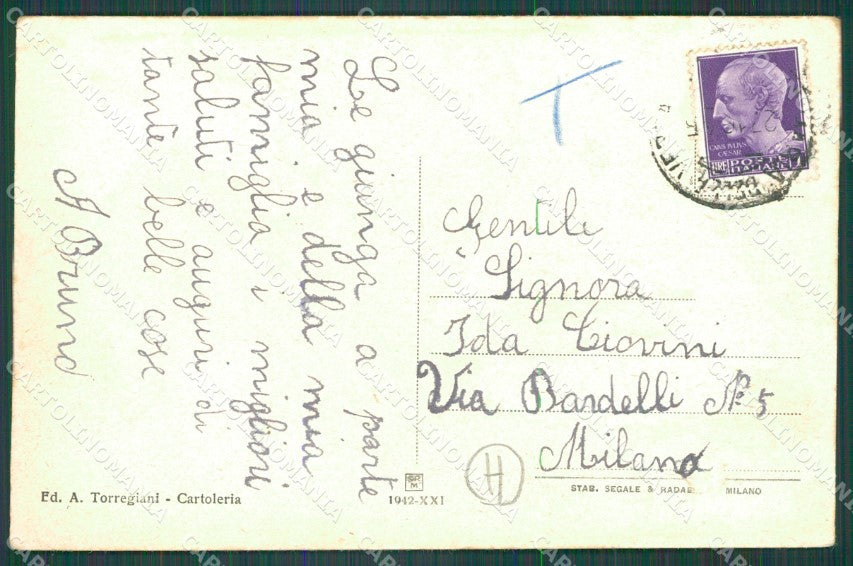 Le gianga a parte
mia e della mia
famiglia i migliori
saluti e auguri di
tante belle cose
A Bruno
Gentile
Signora
Ida Ciovini
Via Bardelli N. 5
Milano
T
H
CAIVS IVLIVS
CAESAR
LIRE POSTE 1
ITALIANE
Ed. A. Torregiani - Cartoleria
1942-XXI
STAB. SEGALE & RADAE MILANO
CARTOLINOMANIA